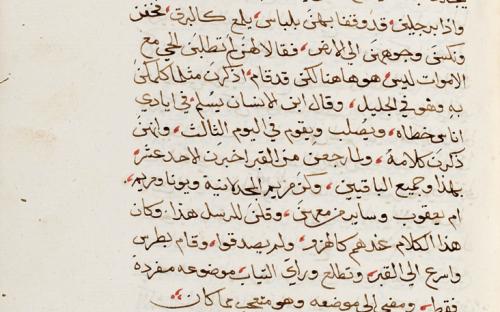 واذا برجلين قد وقفتا بهن بلباس يلمع كالبرق فخفن
ونكسن وجوههن الى الارض، فقالا لهن لم تطلبن الحي مع
الاموات ليس، هو هاهنا لكن قد قام، اذكرن مثل ما كلمكن
به وهو في الجليل، وقال ابن الانسان يسلم، في ايادي
اناس خطاه، ويصلب ويقوم في اليوم الثالث، وانهن
ذكرن كلامه، ولما رجعن من القبر اخبرن الاحد عشر،
بهذا وجميع الباقيين، وكن مريم المجدلانيه ويونا ومريم
ام يعقوب وساير من معهن، وقلن للرسل هذا، وكان
هذا الكلام عندهم كالهزو، ولم يصدقوا، وقام بطرس
واسرع الى القبر، وتطلع وراي الثياب، موضوعه مفرده
فقط، ومضى الى موضعه وهو متعجب مما كان